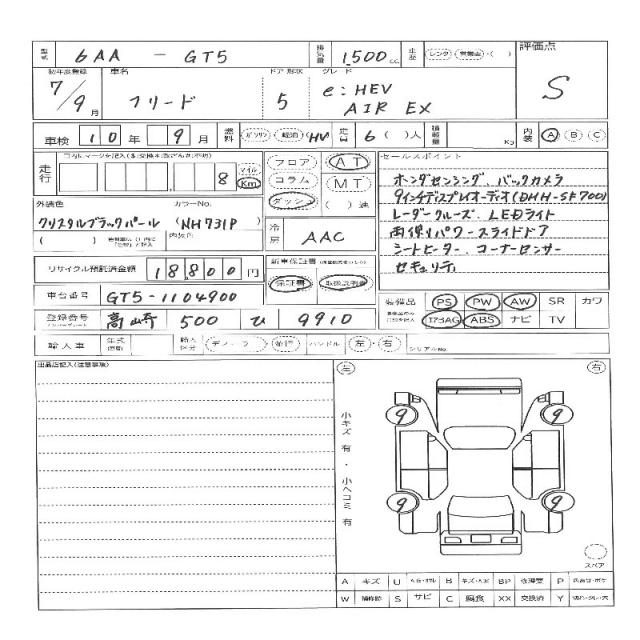 型式 6AA - GT5 排気量 1,500 cc 生産 レンタ・営業車・( ) 評価点
初年度登録 車名 ドア 形状 グレード
7/9月 フリード 5 e:HEV AIR EX S
車検 10年 9月 燃料 ガソリン・軽油・HV 定員 6( )人 積載量 Kg 内装 A B C
走行 8 マイル Km フロア コラム ダッシュ AT MT ( )速
セールスポイント
ホンダセンシング、バックカメラ
9インチディスプレイオーディオ(DHH-SF700)
レーダークルーズ、LEDライト
両側パワースライドドア
シートヒーター、コーナーセンサー
セキュリティ
外装色 カラーNo.
クリスタルブラックパール (NH731P)
( ) 内装色 冷房 AAC
リサイクル預託済金額 18,800円 新車保証書
保証書 取扱説明書
車台番号 GT5-1104900
装備品 PS PW AW SR カワ
エアBAG ABS ナビ TV
登録番号 高崎 500 ひ 9910
輸入車 年式 輸入区分 ディーラー・並行 ハンドル 左・右 シリアルNo.
出品店記入(注意事項)
左 右
小キズ有・小ヘコミ有
9 9
9 9
スペア
A キズ U B BP 修理要 P
W 補修跡 S サビ C 腐食 XX 交換済 Y